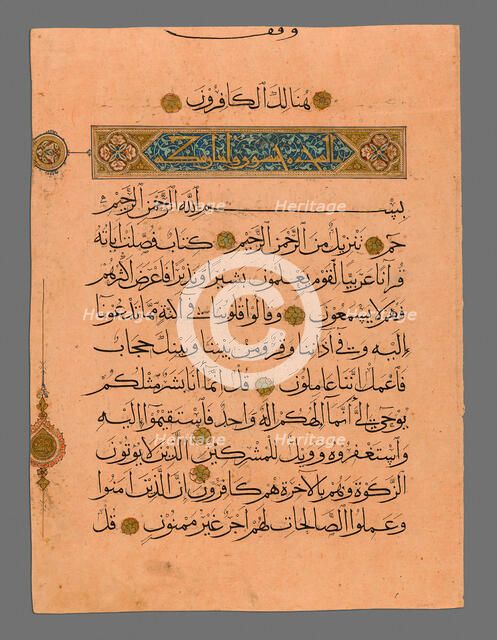 وقف
هنالك الكافرون
بسم الله الرحمن الرحيم
حم تنزيل من الرحمن الرحيم كتاب فصلت اياته
قرانا عربيا لقوم يعلمون بشيرا ونذيرا فاعرض اكثرهم
فهم لا يسمعون وقالوا قلوبنا في اكنة مما تدعونا
اليه وفي آذاننا وقر ومن بيننا وبينك حجاب
فاعمل اننا عاملون قل انما انا بشر مثلكم
يوحى الي انما الهكم اله واحد فاستقيموا اليه
واستغفروه وويل للمشركين الذين لا يوتون
الزكوة وهم بالآخرة هم كافرون ان الذين آمنوا
وعملوا الصالحات لهم اجر غير ممنون قل
Heritage
Heritage
Heritage
Heritage
Heritage
Heritage
Heritage
Heritage
©